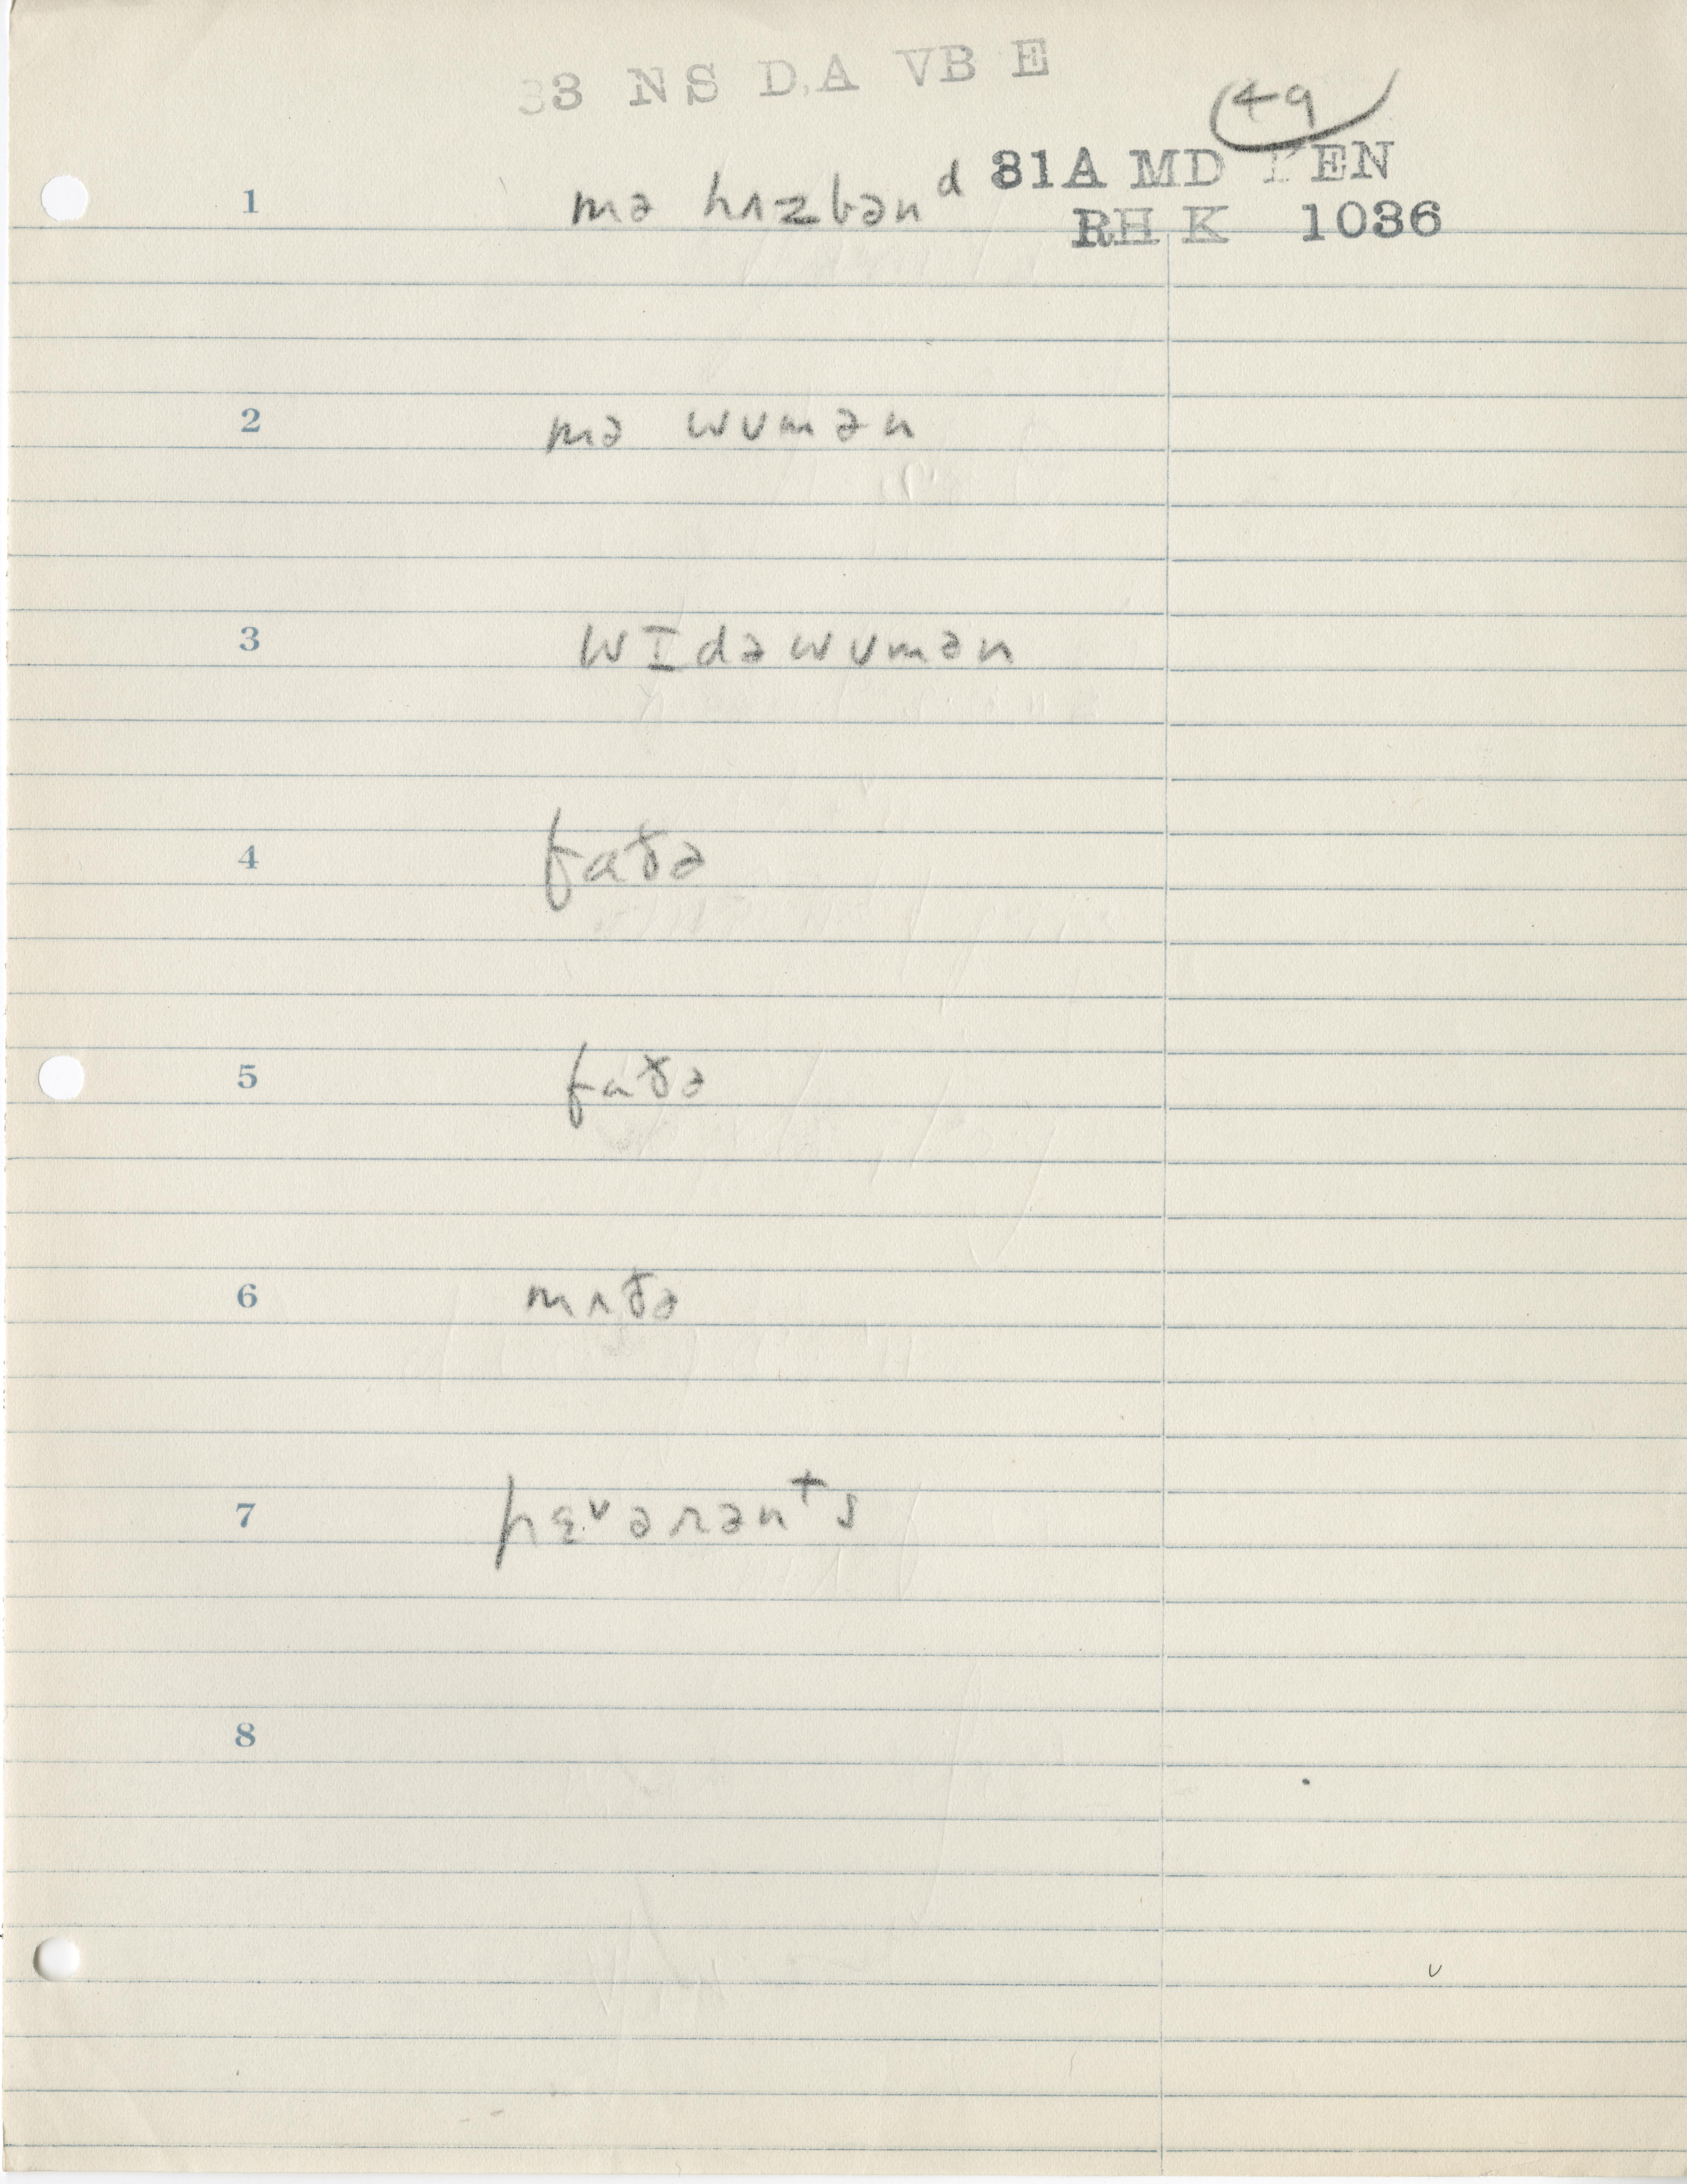 33 NS D,A VB E
49
81A MD KEN
RH K 1036
1 mə hʌzbənᵈ
2 mə wʊmən
3 wɪdəwʊmən
4 faðə
5 faðə
6 mʌðə
7 pɛᵛərənᵗs
8